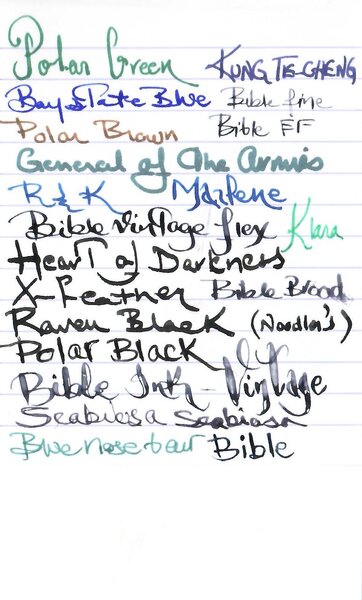 Polar Green KUNG TE-CHENG
Bay State Blue Bible fine
Polar Brown Bible EF
General of The Armies
R & K Marlene
Bible Vintage flex Klara
Heart of Darkness
X-Feather Bible Broad
Raven Black (Noodler's)
Polar Black
Bible Ink - Vintage
Scabiosa Scabiosa
Blue nose bear Bible